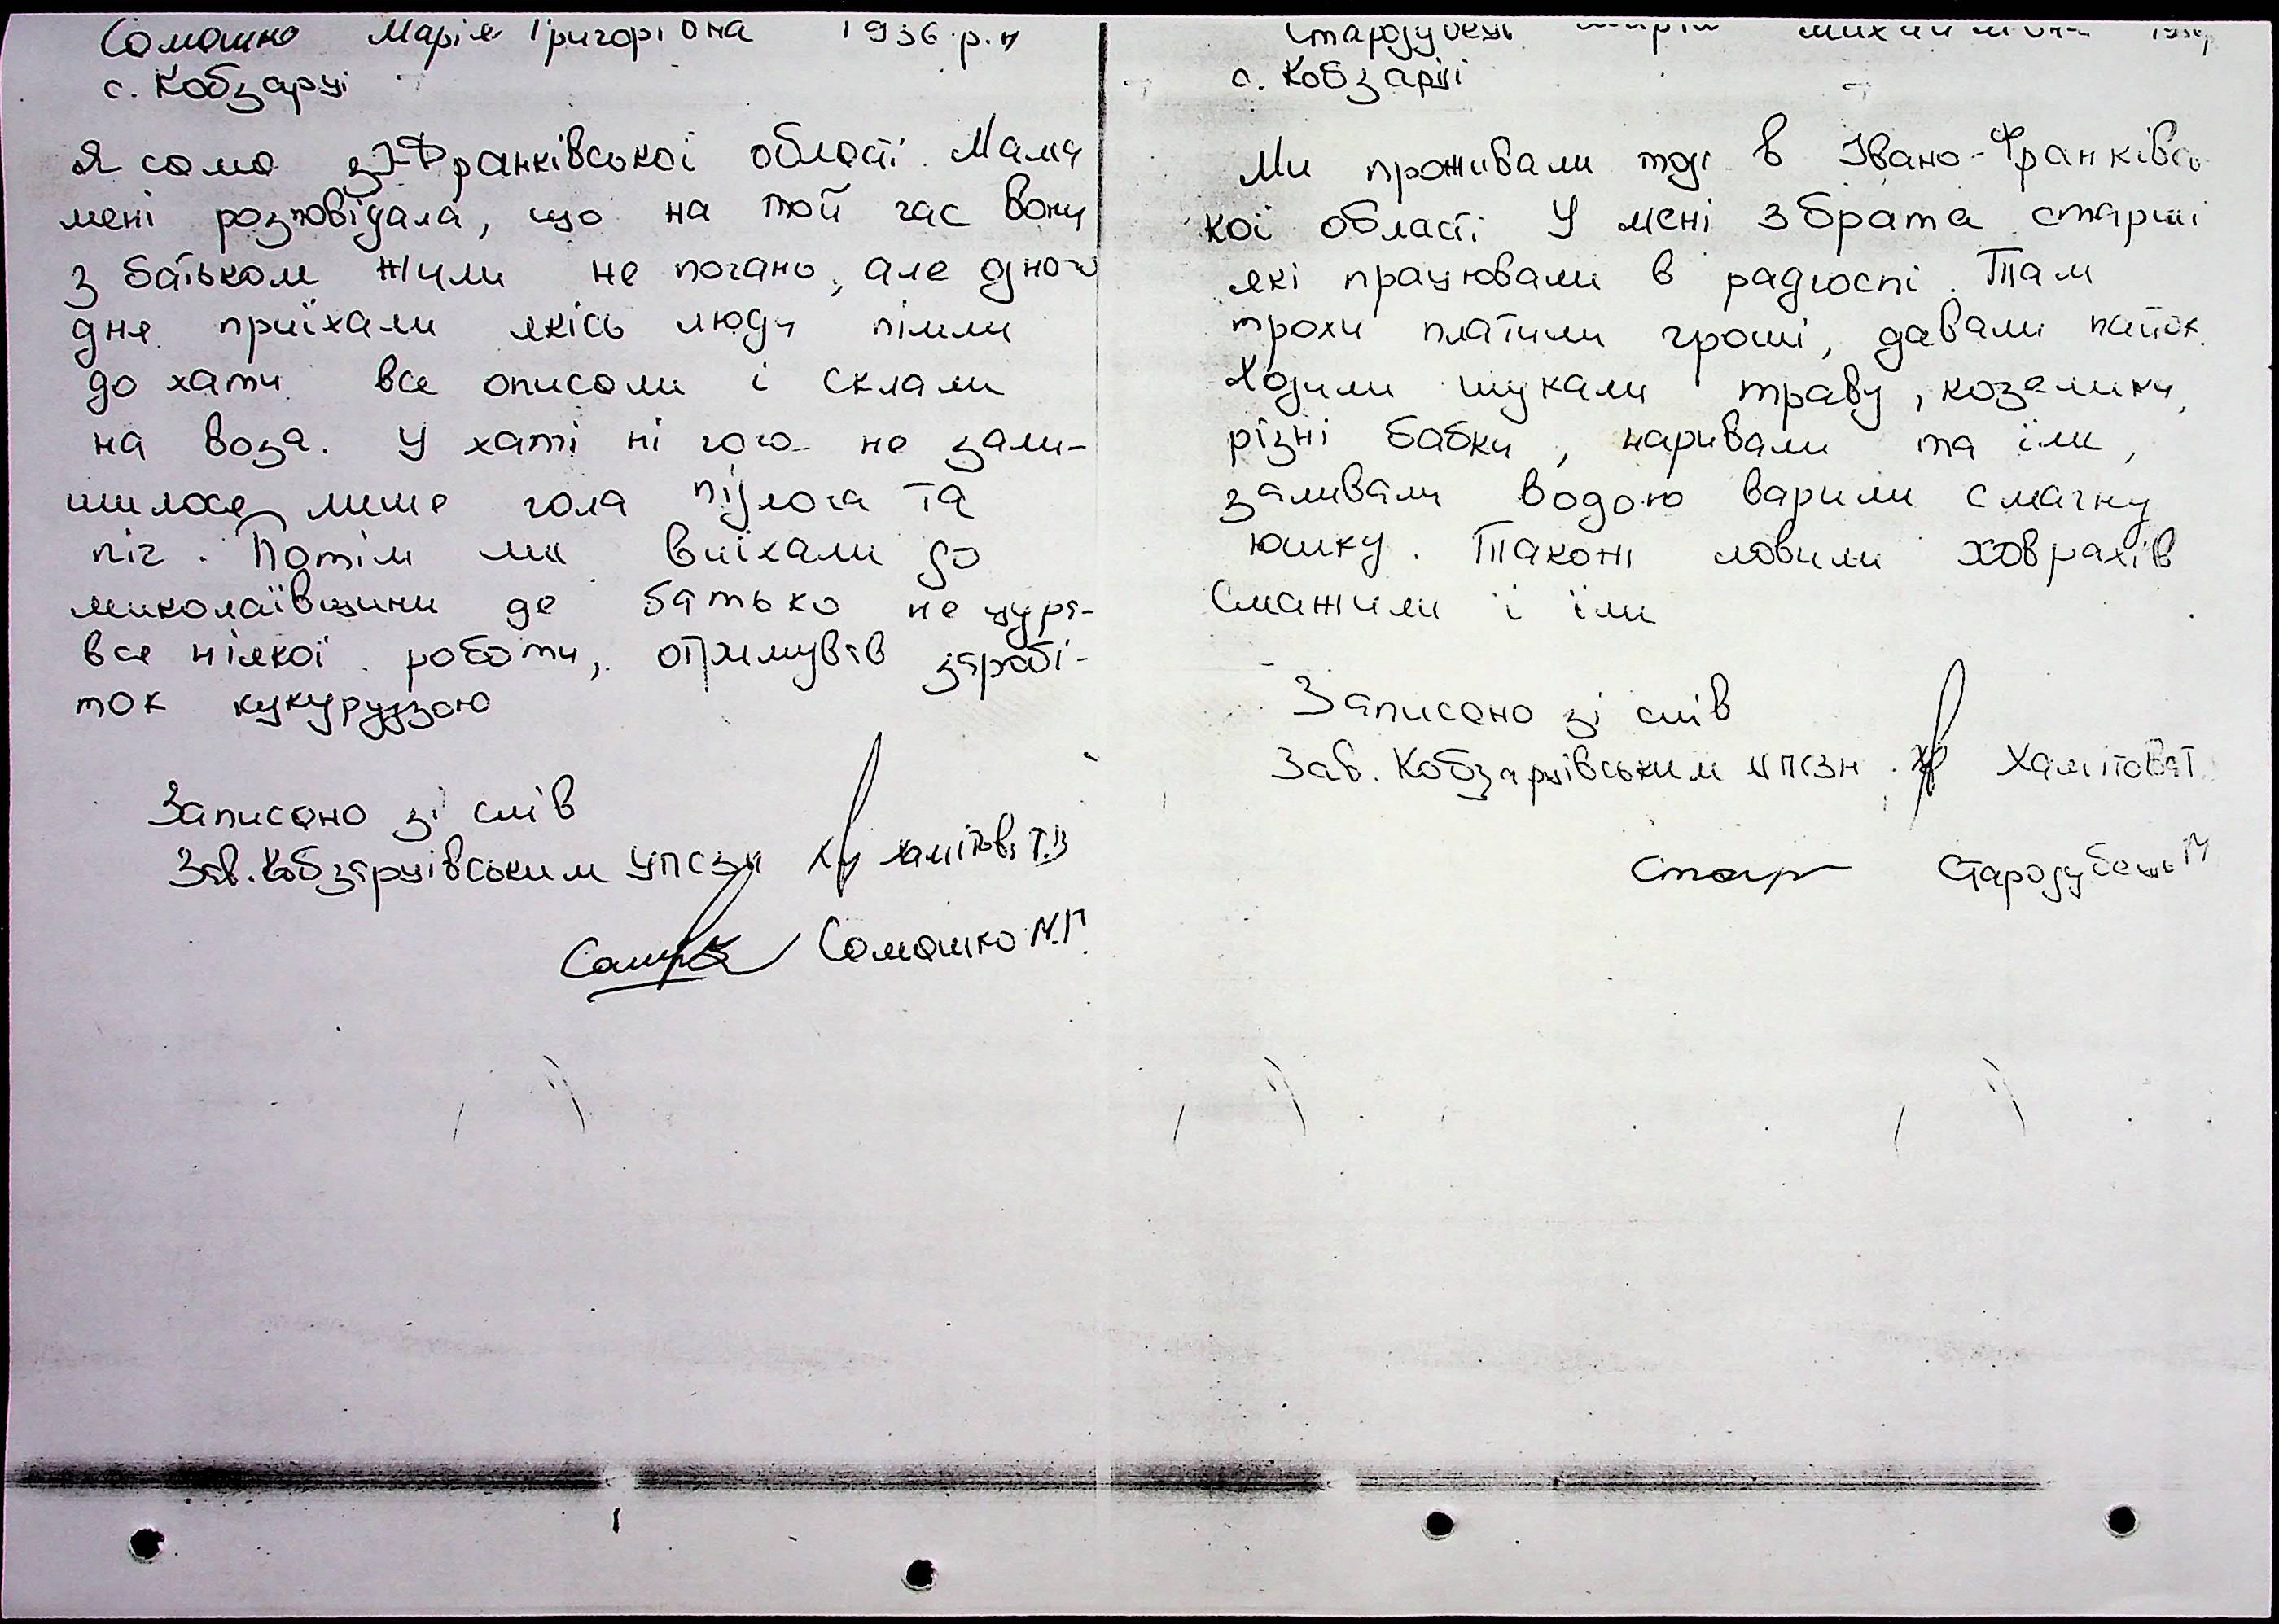 Сомашко Марія Григорівна 1936 р.н
с. Кобзарці
Я сама з І-Франківської області. Мама
мені розповідала, що на той час вони
з батьком жили не погано, але одного
дня приїхали якісь люди пішли
до хати все описали і склали
на воза. У хаті ні чого не зали-
шилося лише гола підлога та
піч. Потім ми виїхали до
миколаївщини де батько не цура-
вся ніякої роботи, отримував заробі-
ток кукурудзою
Записано зі слів
Зав. Кобзарцівським УПСЗН Хамітова Т.В
Сомашко М.Г.
Стародубець Марія Михайлівна
с. Кобзарці
Ми проживали тоді в Івано-Франківсь
кої області У мені 3 брата старші
які працювали в радгоспі. Там
трохи платили гроші, давали пайок.
Ходили шукали траву, козелики,
різні бабки, наривали та їли,
заливали водою варили смачну
юшку. Також ловили ховрахів
Смажили і їли
Записано зі слів
Зав. Кобзарцівським УПСЗН Хамітова Т
Стар Стародубець М